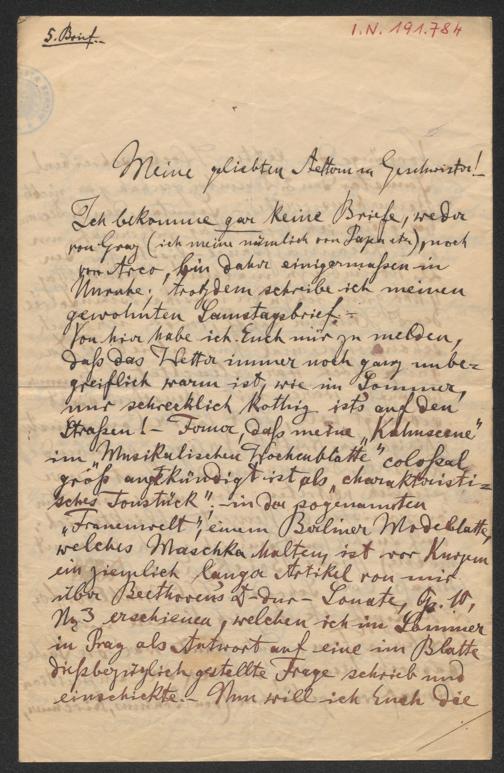 5. Brief.-
I.N. 191.784
Meine geliebten Aeltern u Geschwister!-
Ich bekomme gar keine Briefe, weder
von Graz (ich meine nämlich von Papa etc), noch
von Arco, bin daher einigermaßen in
Unruhe; trotzdem schreibe ich meinen
gewohnten Samstagsbrief.-
Von hier habe ich Euch nur zu melden,
daß das Wetter immer noch ganz unbe-
greiflich warm ist, wie im Sommer,
nur schrecklich kothig ist's auf den
Straßen!- Ferner, daß meine "Kahnscene"
im "Musikalischen Wochenblatte" colossal
groß angekündigt ist als "charakteristi-
sches Tonstück";- in der sogenannten
"Frauenwelt", einem Berliner Modeblatte,
welches Maschka halten, ist vor Kurzem
ein ziemlich langer Artikel von mir
über Beethovens D-dur-Sonate, Op. 10,
No 3 erschienen, welchen ich im Sommer
in Prag als Antwort auf eine im Blatte
dießbezüglich gestellte Frage schrieb und
einschickte.- Nun will ich Euch die